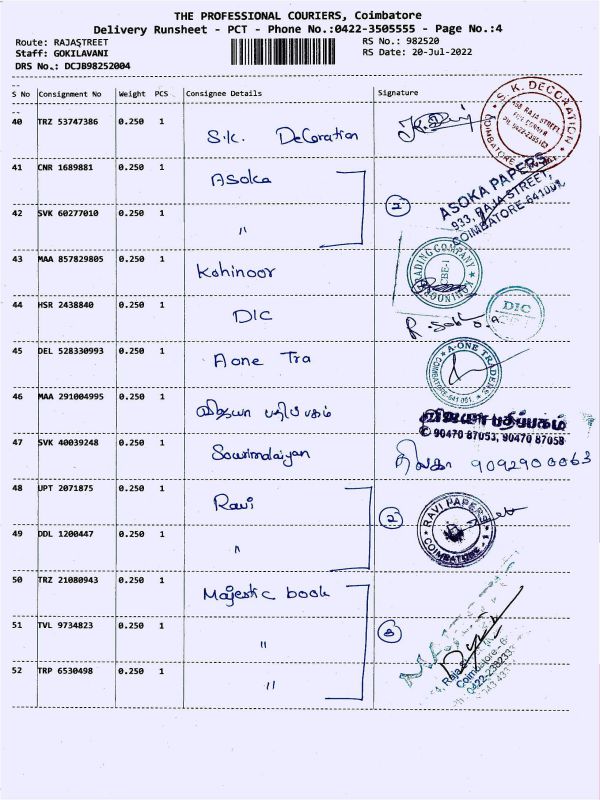 THE PROFESSIONAL COURIERS, Coimbatore
Delivery Runsheet - PCT - Phone No.:0422-3505555 - Page No.:4
Route: RAJASTREET RS No.: 982520
Staff: GOKILAVANI RS Date: 20-Jul-2022
DRS No.: DCJB98252004
S No Consignment No Weight PCS Consignee Details Signature
40 TRZ 53747386 0.250 1 S.K. Decoration
S.K. DECORATION
RAJA STREET
COIMBATORE
41 CNR 1689881 0.250 1 Asoka
ASOKA PAPERS
933, RAJA STREET,
COIMBATORE-641001
42 SVK 60277010 0.250 1 "
2
43 MAA 857829805 0.250 1 Kohinoor
KOHINOOR TRADING COMPANY
CBE-1
44 HSR 2438840 0.250 1 DIC
DIC
45 DEL 528330993 0.250 1 A one Tra
A-ONE TRADERS
COIMBATORE-641 001.
46 MAA 291004995 0.250 1 விஜயா பதிப்பகம்
விஜயா பதிப்பகம்
✆ 90470 87053, 90470 87058
47 SVK 40039248 0.250 1 Sowrimalaiyan
48 UPT 2071875 0.250 1 Ravi
2
RAVI PAPERS
COIMBATORE - 1
49 DDL 1200447 0.250 1 "
50 TRZ 21080943 0.250 1 Majestic book
51 TVL 9734823 0.250 1 "
3
Coimbatore
52 TRP 6530498 0.250 1 "